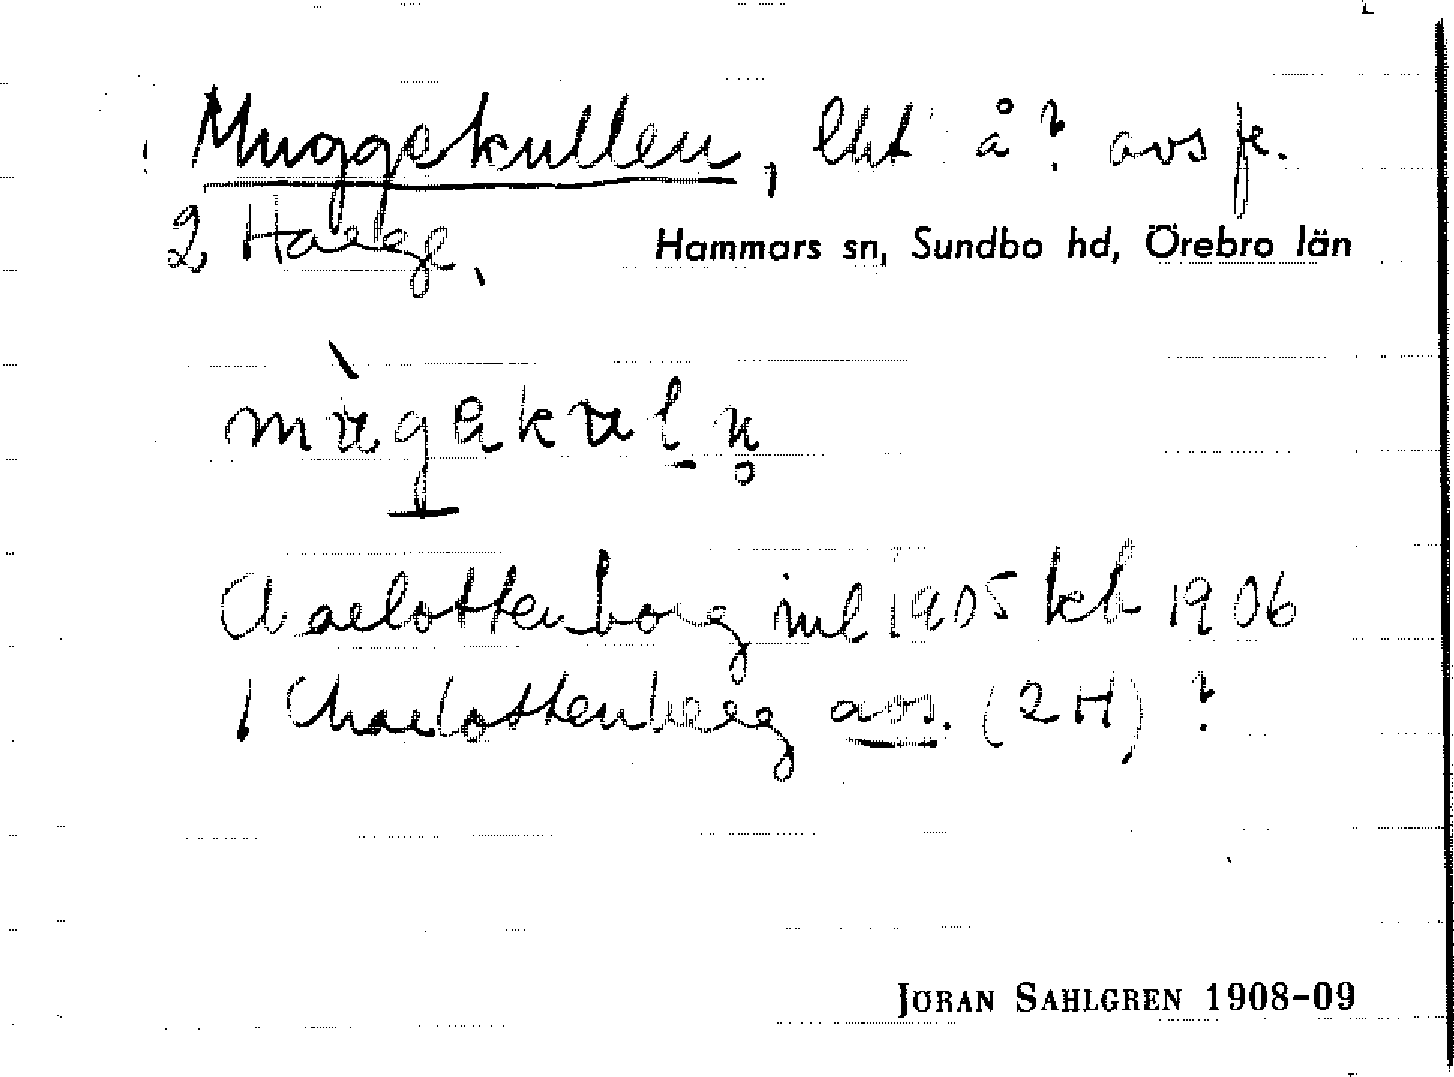 Muggekullen, lht å? avs fr.
2 Harge,
Hammars sn, Sundbo hd, Örebro län
Charlottenborg inl 1905 kb 1906
Charlottenberg avs. (2H) ?
JÖRAN SAHLGREN 1908-09